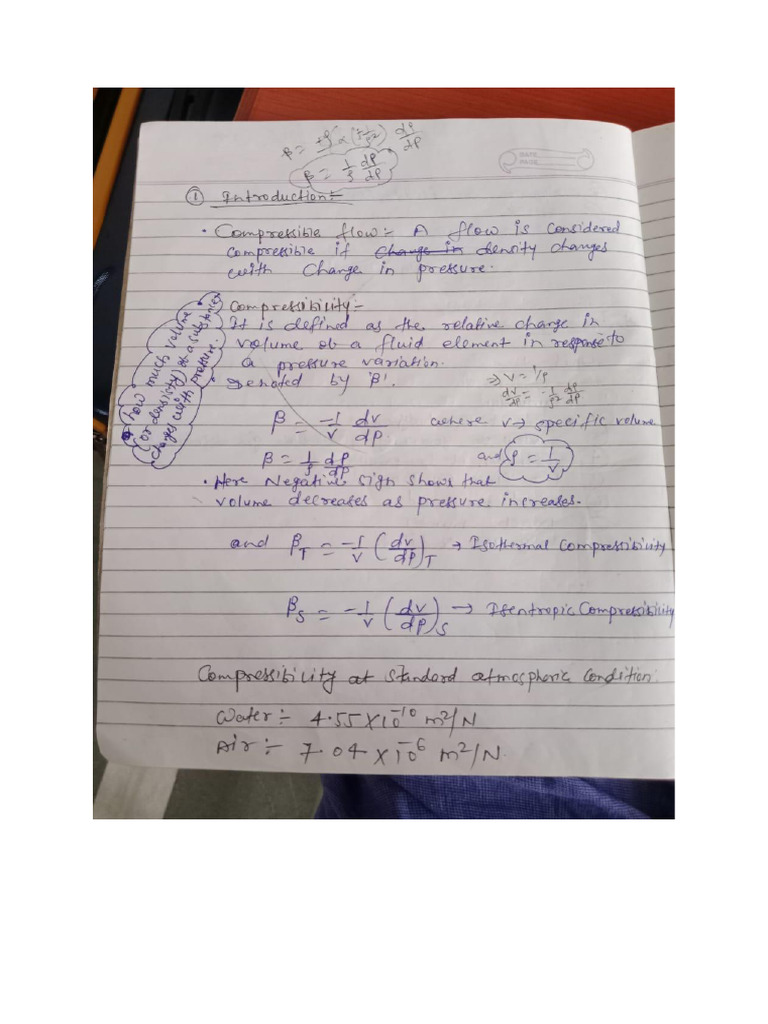 β = +ρ × (+1/ρ²) dρ/dp
β = 1/ρ dρ/dp
DATE
PAGE
① Introduction:-
• Compressible flow:- A flow is considered
compressible if Change in density changes
with Change in pressure.
• Compressibility:-
It is defined as the relative change in
volume of a fluid element in response to
a pressure variation.
• Denoted by 'β'.
⇒ v = 1/ρ
dv/dp = -1/ρ² dρ/dp
how much volume
(or density) of a substance
changes with pressure.
β = -1/v dv/dp where v → specific volume
β = 1/ρ dρ/dp and ρ = 1/v
• Here Negative sign shows that
volume decreases as pressure increases.
and β_T = -1/v (dv/dp)_T → Isothermal Compressibility
β_S = -1/v (dv/dp)_S → Isentropic Compressibility
Compressibility at standard atmospheric condition:
Water:- 4.55 X 10⁻¹⁰ m²/N
Air:- 7.04 X 10⁻⁶ m²/N